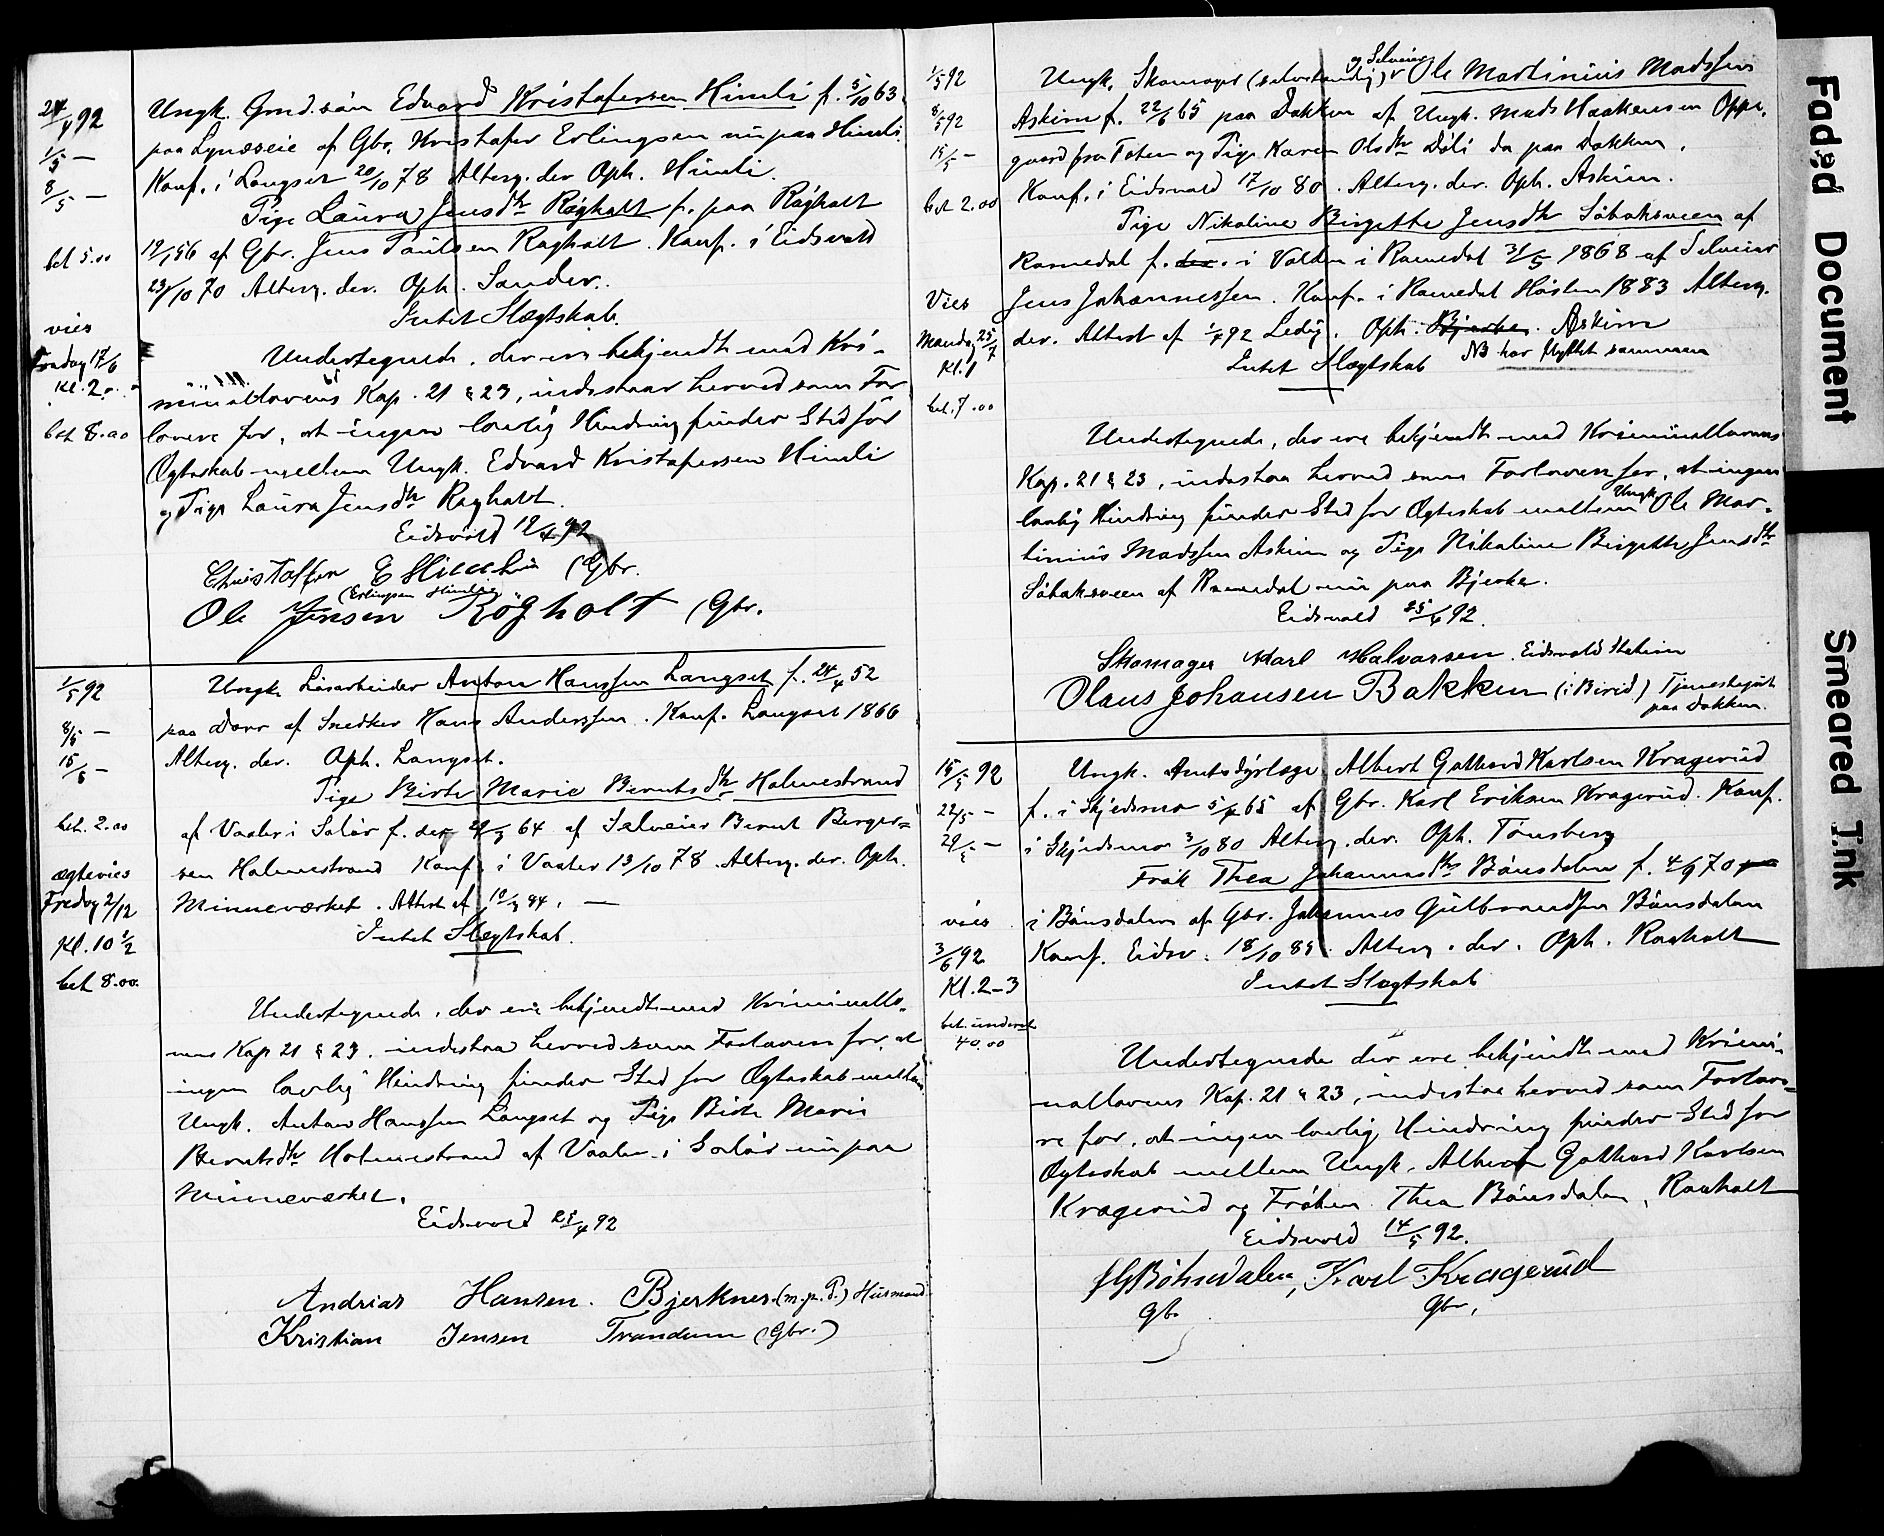 24/4 92
1/5 —
8/5 —
bet 5.00
vies
Fredag 17/6
Kl. 2
bet 8.00
Ungk. Grnd.søn Edvard Kristafersen Himli f. 5/10 63
paa Lynæseie af Gbr. Kristafer Erlingsen nu paa Himli.
Konf. i Langset 20/10 78 Alterg. der Oph. Himli.
Pige Laura Jensdtr Røgholt f. paa Røgholt
af Gbr. Jens Paulsen Røgholt. Konf. i Eidsvold
23/10 70 Alterg. der. Oph. Sander.
Intet Slægtskab.
Undertegnede, der ere bekjendt med Kri-
minallovens Kap. 21 § 23, indestaar herved som For
lovere for, at ingen lovlig Hindring finder Sted for
Ægteskab mellem Ungk. Edvard Kristafersen Himli
og Pige Laura Jensdtr Røgholt.
Eidsvold 19/4 92
Christoffer E Himli (Gbr.
(Erlingsen Himli)
Ole Jensen Røgholt (Gbr.
1/5 92
8/5 —
15/5 —
bet. 2.00
ægtevies
Fredag 2/12
Kl. 10 1/2
bet 8.00.
Ungk. Løsarbeider Anton Hanssen Langset f. 24/4 52
paa Dorr af Snedker Hans Anderssen. Konf. Langset 1866
Alterg. der. Oph. Langset.
Pige Birte Marie Berntsdtr Holmestrand
af Vaaler i Solør f. der 64 af Selveier Bernt Berger-
sen Holmestrand Konf. i Vaaler 13/10 78. Alterg. der. Oph.
Minneværket. Attest af —
Intet Slægtskab.
Undertegnede, der ere bekjendt med Kriminallo-
vens Kap 21 § 23, indestaa herved som Forlovere for, at
ingen lovlig Hindring finder Sted for Ægteskab mellem
Ungk. Anton Hanssen Langset og Pige Birte Marie
Berntsdtr Holmestrand af Vaaler i Solør nu paa
Minneværket.
Eidsvold 92
Andrias Hansen. Bjerknes (m.p.P.) Husmand
Kristian Jensen Trandum (Gbr.)
1/5 92
8/5 92
15/5 —
bet 2.00
Vies
Mandag 25/7
Kl. 1
bet. 7.00
og Selveier
Ungk. Skomager (selvstændig) Ole Martinius Madssen
Askim f. 22/6 65 paa Dokken af Ungk. Mads Haakensen Oppe-
gaard fra Toten og Pige Karen Olsdtr Døli da paa Dokken.
Konf. i Eidsvold 17/10 80. Alterg. der. Oph. Askim.
Pige Nikoline Birgitte Jensdtr Søbaksveen af
Romedal f. der. i Vallen i Romedal 31/5 1868 af Selveier
Jens Johannessen. Konf. i Romedal Høsten 1883 Alterg.
der. Attest af 92 Ledig. Oph. Bjerke. Askim
NB har flyttet sammen
Intet Slægtskab
Undertegnede, der ere bekjendt med Kriminallovens
Kap. 21 § 23, indestaa herved som Forlovere for, at ingen
lovlig Hindring finder Sted for Ægteskab mellem Ungk. Ole Mar-
tinius Madssen Askim og Pige Nikoline Birgitte Jensdtr
Søbaksveen af Romedal nu paa Bjerke.
Eidsvold 25/4 92.
Skomager Karl Halvorsen. Eidsvold Station
Olaus Johansen Bakken (i Birid) Tjenestegut
paa Dokken.
15/5 92
22/5 —
29/5 —
vies
3/6 92
Kl. 2-3
bet. underet
40.00
Ungk. Amtsdyrlæge Albert Gotthard Karlsen Kragerud
f. i Skjedsmo 65 af Gbr. Karl Eriksen Kragerud. Konf.
i Skjedsmo 3/10 80 Alterg. der. Oph. Tønsberg
Frøk Thea Johannesdtr Bønsdalen f. 4/9 70 paa
i Bønsdalen af Gbr. Johannes Gulbrandsen Bønsdalen
Konf. Eidsv. 18/10 85. Alterg. der. Oph. Raaholt
Intet Slægtskab
Undertegnede der ere bekjendt med Krimi-
nallovens Kap. 21 § 23, indestaa herved som Forlove-
re for, at ingen lovlig Hindring finder Sted for
Ægteskab mellem Ungk. Albert Gotthard Karlsen
Kragerud og Frøken Thea Bønsdalen, Raaholt
Eidsvold 14/5 92.
JGBöhnsdalen, Karl Kragerud
Gb. Gbr.
Faded Document
Smeared Ink